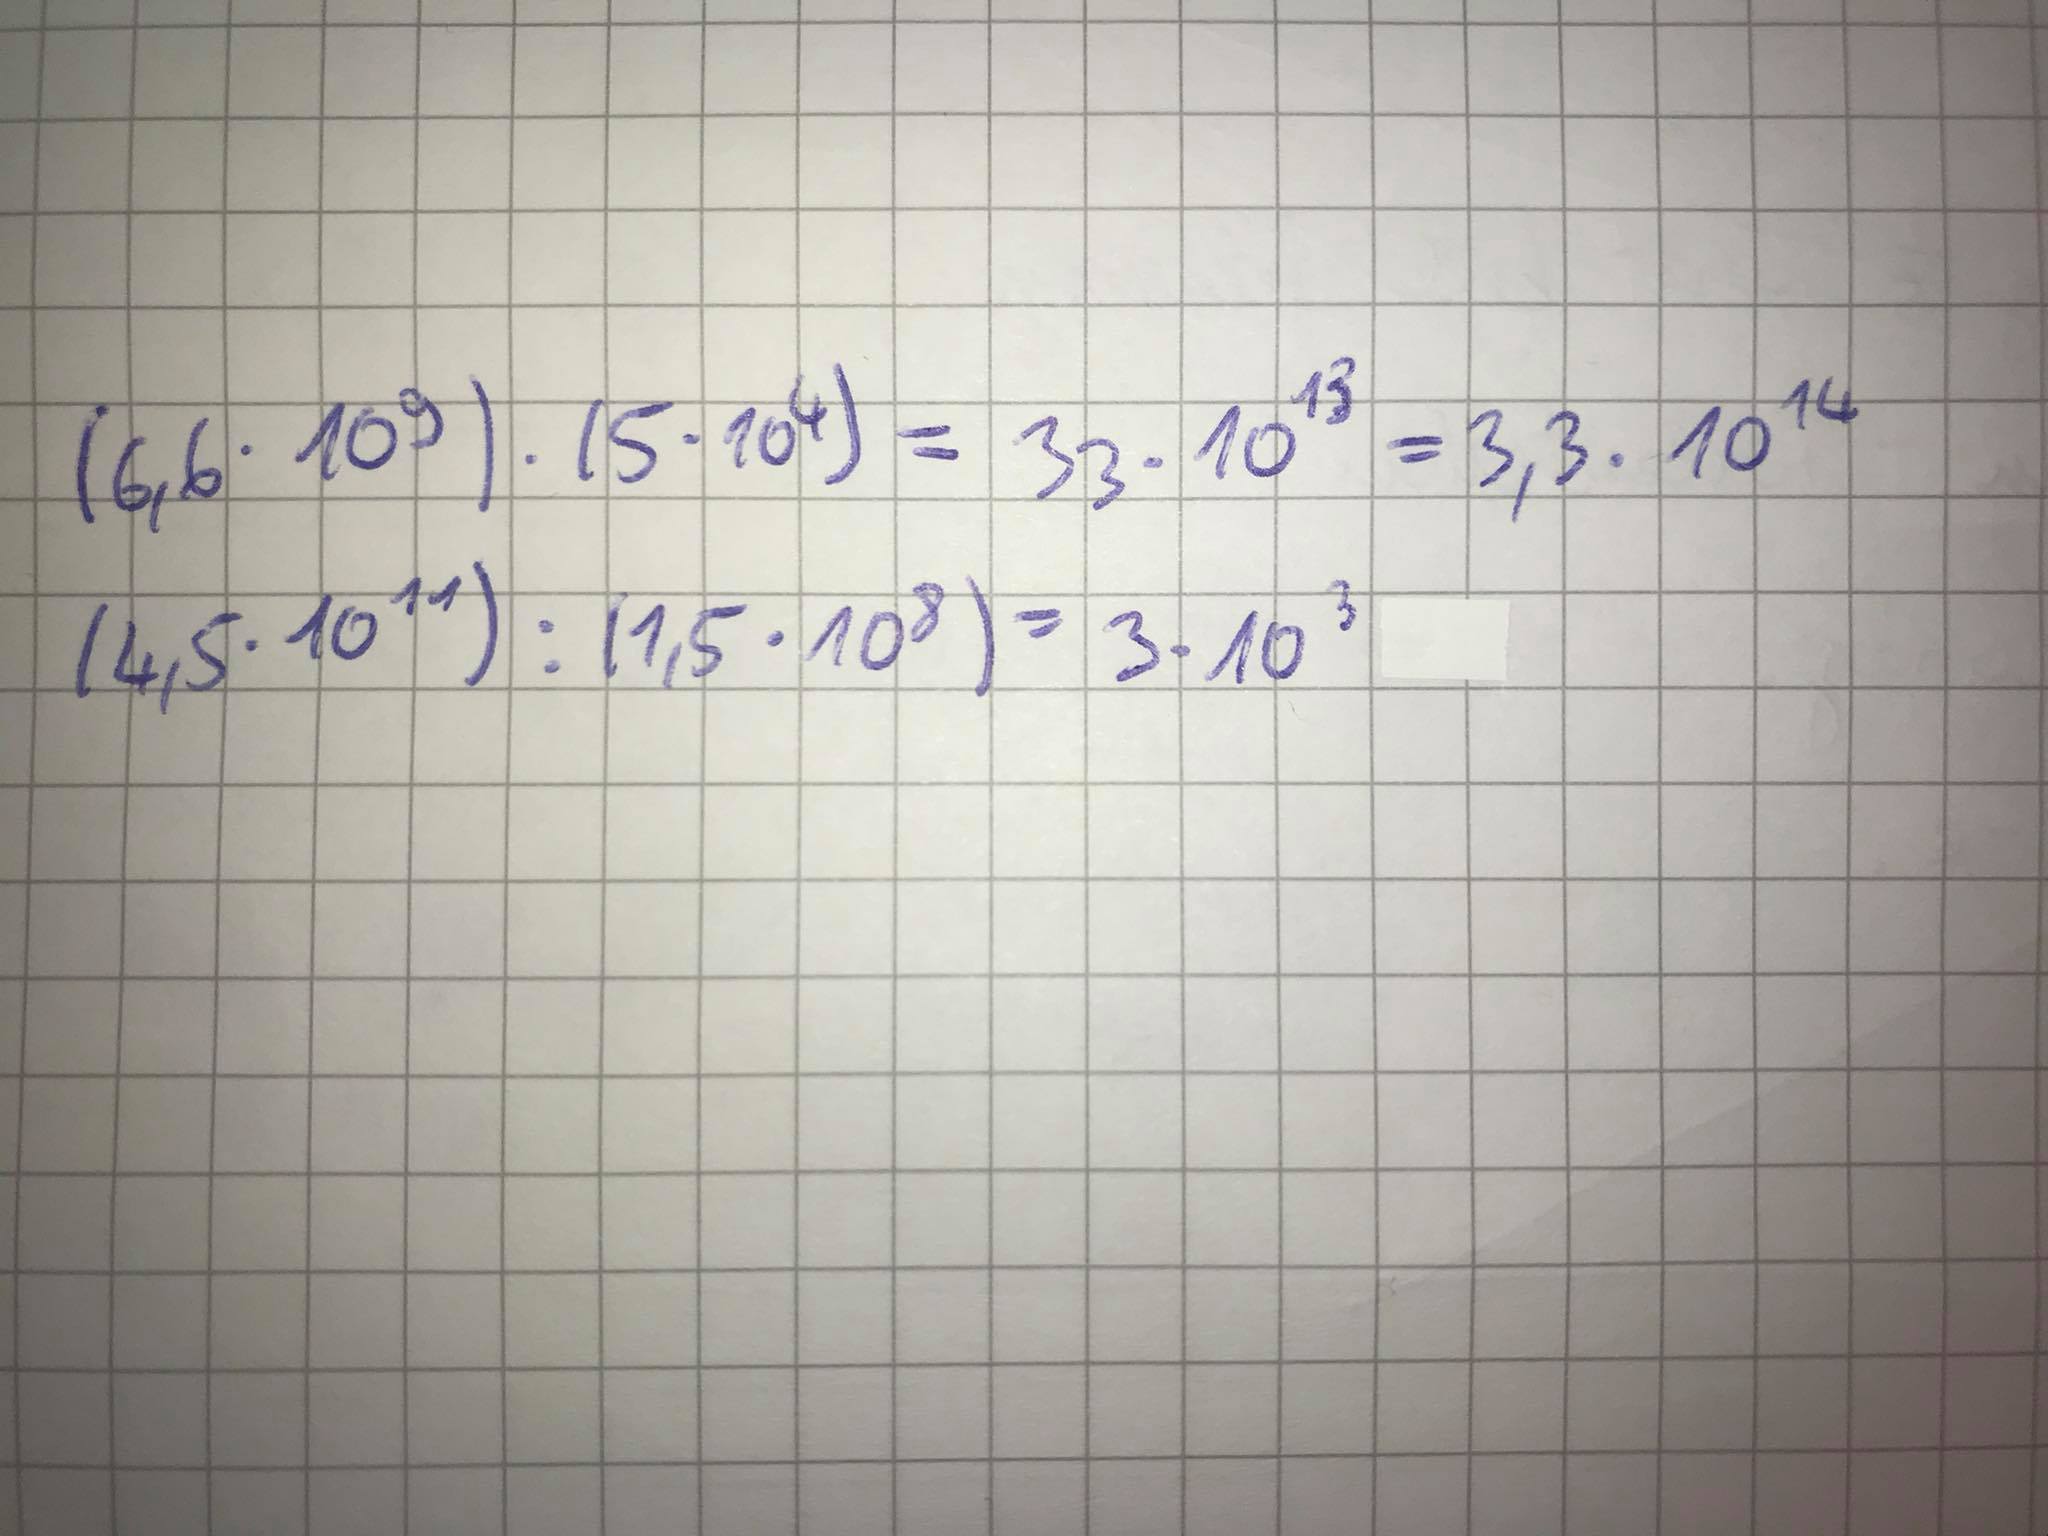 (6,6 · 10⁹) · (5 · 10⁴) = 33 · 10¹³ = 3,3 · 10¹⁴
(4,5 · 10¹¹) : (1,5 · 10⁸) = 3 · 10³